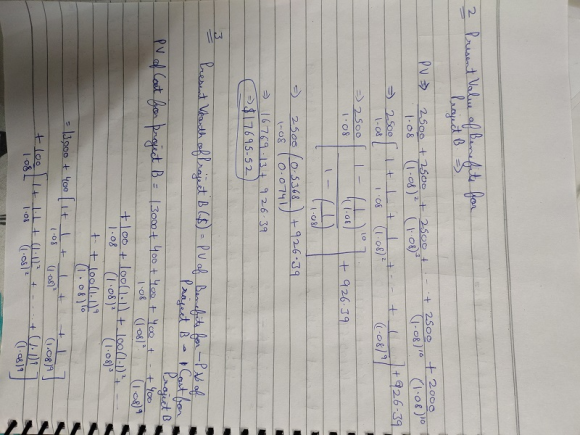 2 Present Value of Benefits for
Project B ⇒
PV ⇒ 2500/1.08 + 2500/(1.08)² + 2500/(1.08)³ + - - + 2500/(1.08)¹⁰ + 2000/(1.08)¹⁰
⇒ 2500/1.08 [1 + 1/1.08 + 1/(1.08)² + - - + 1/(1.08)⁹] + 926.39
⇒ 2500/1.08 [1 - (1/1.08)¹⁰ / 1 - (1/1.08)] + 926.39
⇒ 2500/1.08 (0.5368/0.0741) + 926.39
⇒ 16769.13 + 926.39
⇒ $17695.52
3 Present Worth of Project B ($) = PV of Benefits for Project B - PV of Cost for Project B
PV of Cost for project B = 13000 + 400 + 400/1.08 + 400/(1.08)² + - - + 400/(1.08)⁹
+ 100/1.08 + 100(1.1)/(1.08)² + 100(1.1)²
+ - + 100(1.1)⁹/(1.08)¹⁰
= 13000 + 400 [1 + 1/1.08 + 1/(1.08)² + - + 1/(1.08)⁹]
+ 100/1.08 [1 + 1.1/1.08 + (1.1)²/(1.08)² + - - + (1.1)⁹/(1.08)⁹]